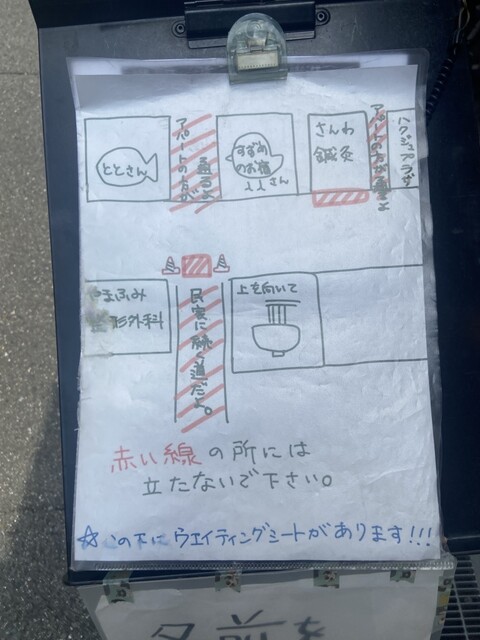 ととさん
アパートの方が
通るよ
すずめ
のお宿
さん
さんわ
鍼灸
アパートの方が通るよ
ハクジュプラザ
やまふみ
形外科
民家に続く道だよ。
上を向いて
赤い線の所には
立たないで下さい。
☆この下にウエイティングシートがあります!!!
名前を